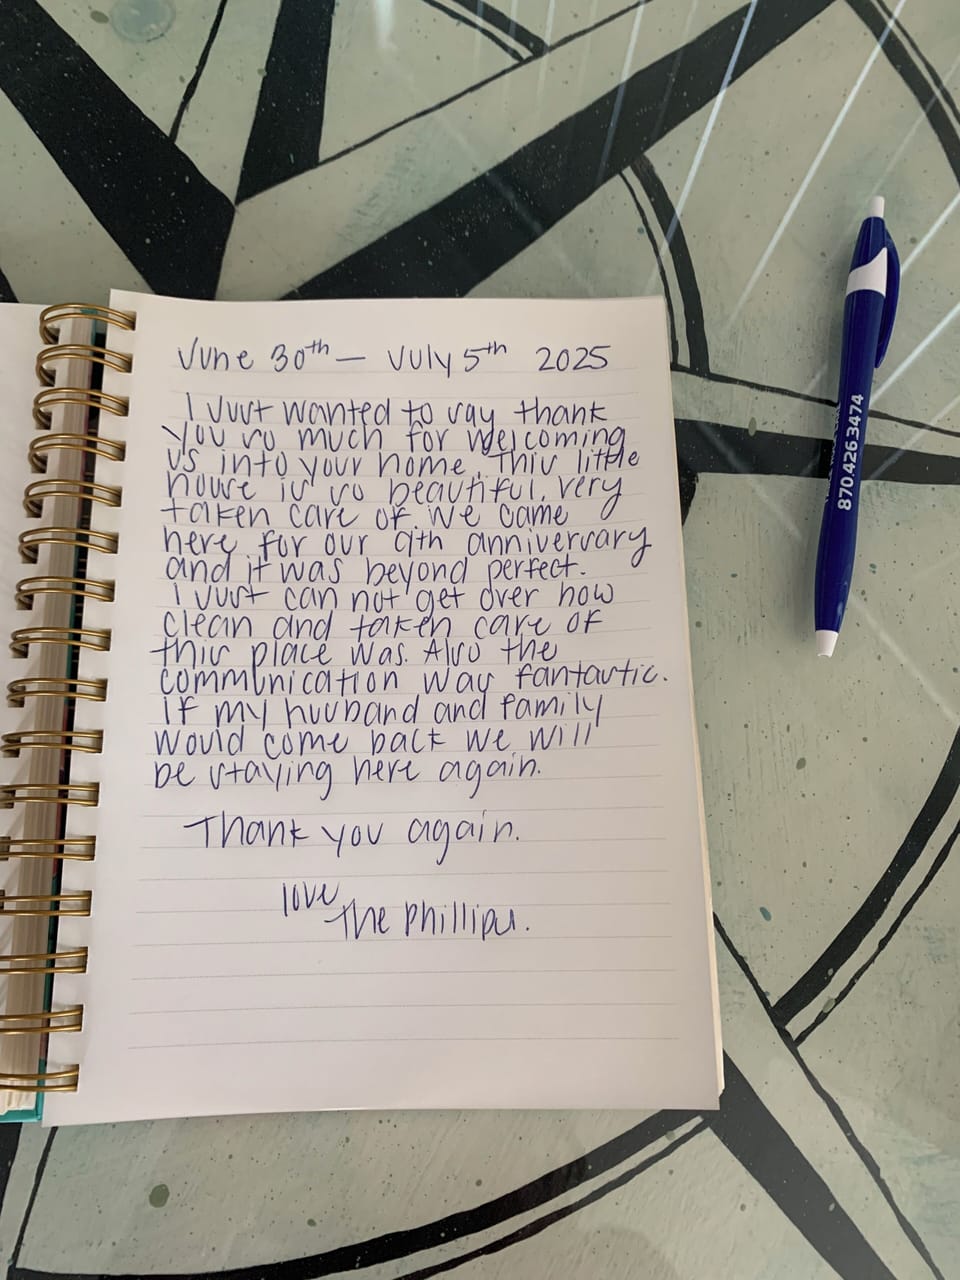 June 30th — July 5th 2025
I just wanted to say thank
you so much for welcoming
us into your home. This little
house is so beautiful, very
taken care of. We came
here for our 9th anniversary
and it was beyond perfect.
I just can not get over how
clean and taken care of
this place was. Also the
communication was fantastic.
If my husband and family
would come back we will
be staying here again.
Thank you again.
love
The Phillips.
870.426.3474